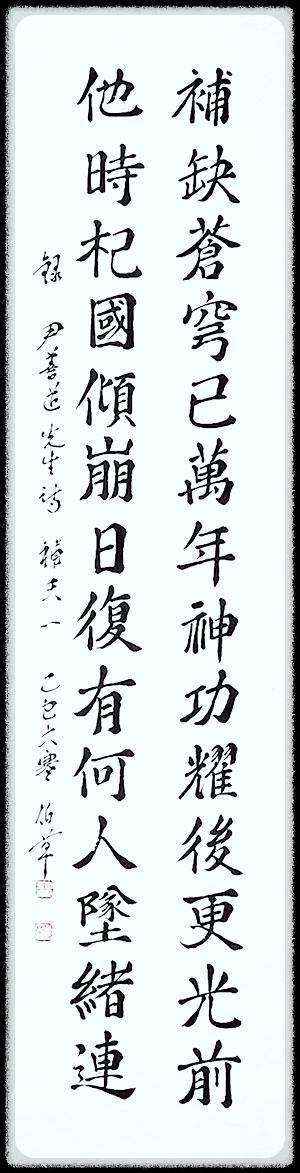 補缺蒼穹已萬年神功耀後更光前
他時杞國傾崩日復有何人墜緒連
錄 尹善道先生詩 補天一 乙巳大寒 伯篳